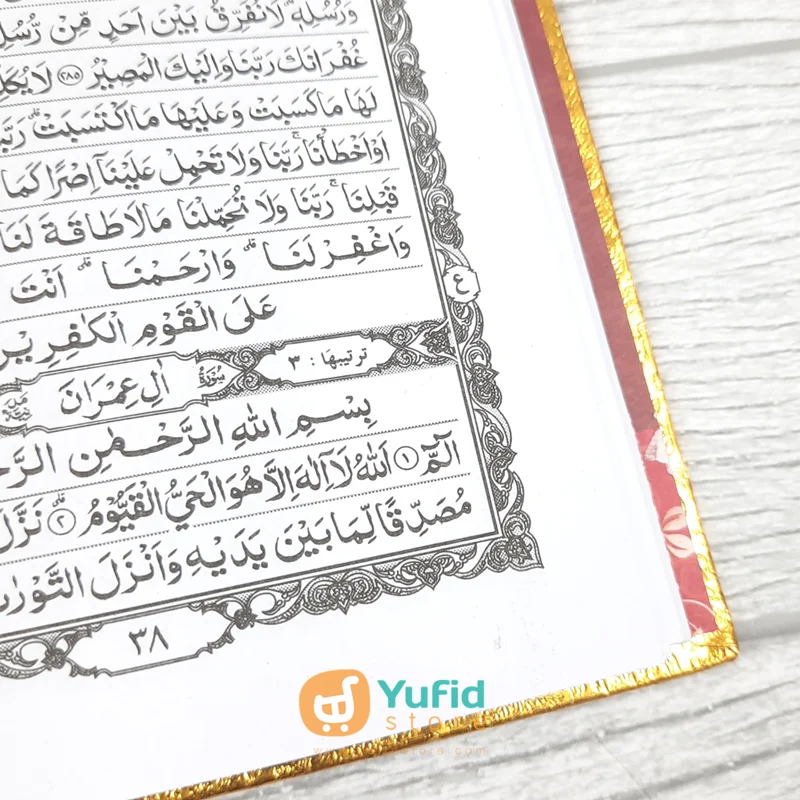 وَرُسُلِهٖ لَا نُفَرِّقُ بَيْنَ اَحَدٍ مِّنْ رُّسُلِ
غُفْرَانَكَ رَبَّنَا وَاِلَيْكَ الْمَصِيْرُ ٢٨٥ لَا يُكَلِّ
لَهَا مَا كَسَبَتْ وَعَلَيْهَا مَا اكْتَسَبَتْ ۗ رَبَّنَ
اَوْ اَخْطَأْنَا ۚ رَبَّنَا وَلَا تَحْمِلْ عَلَيْنَآ اِصْرًا كَمَا
قَبْلِنَا ۚ رَبَّنَا وَلَا تُحَمِّلْنَا مَا لَا طَاقَةَ لَنَا
وَاغْفِرْ لَنَا ۗ وَارْحَمْنَا ۗ اَنْتَ
عَلَى الْقَوْمِ الْكٰفِرِيْن
ع
ترتيبها : ٣
سُوْرَةُ اٰلِ عِمْرَانَ
بِسْمِ اللّٰهِ الرَّحْمٰنِ الرَّحِ
الٓمّٓ ١ اَللّٰهُ لَآ اِلٰهَ اِلَّا هُوَ الْحَيُّ الْقَيُّوْمُ ۗ ٢ نَزَّلَ
مُصَدِّقًا لِّمَا بَيْنَ يَدَيْهِ وَاَنْزَلَ التَّوْرٰىة
٣٨
Yufid
store